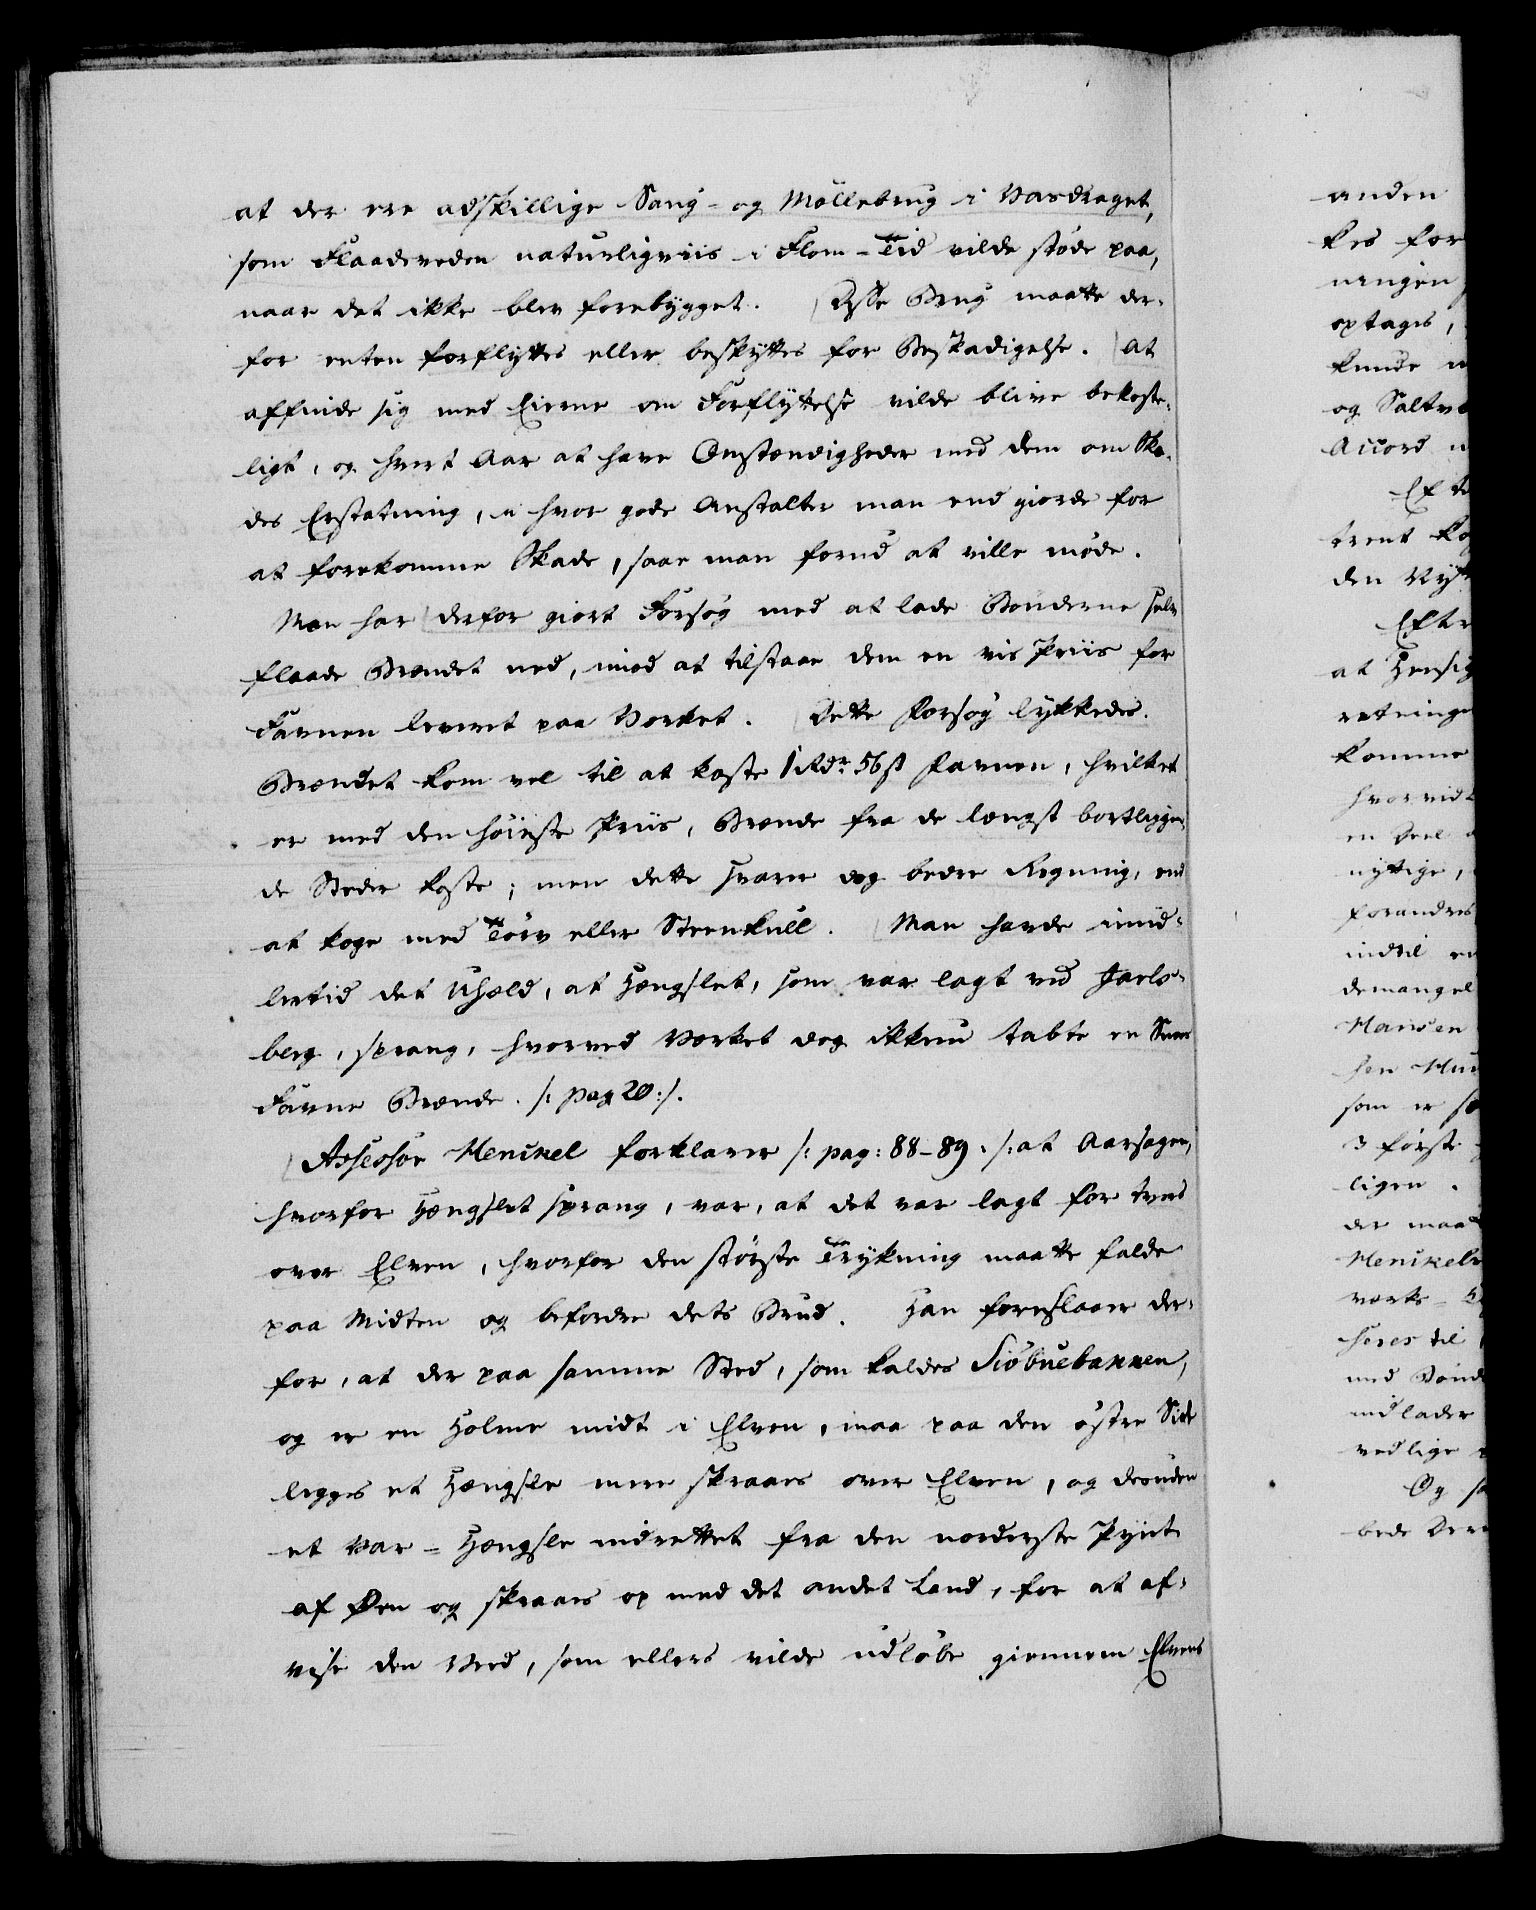 at der ere adskillige Saug- og Möllebrug i Vasdraget,
som Flaadeveden naturligviis i Flom-Tid vilde støde paa,
naar det ikke blev forebygget. Disse Brug maatte der-
for enten forflyttes eller beskyttes for Beskadigelse. At
affinde sig med Eierne om Forflyttelse vilde blive bekoste-
ligt, og hvert Aar at have Omstændigheder med dem om Ska-
des Erstatning, i hvor gode Anstalter man end giorde for
at forekomme Skade, saae man forud at ville møde.
Man har derfor giort Forsøg med at lade Bönderne selv
flaade Brændet ned, imod at tilstaae dem en vis Priis for
Favnen leveret paa Værket. Dette Forsøg lykkedes.
Brændet kom vel til at koste 1 Rdr. 56 ß Favnen, hvilket
er med den höieste Priis, Brænde fra de længst bortliggen-
de Steder koste; men dette svarer dog bedre Regning, end
at koge med Törv eller Steenkull. Man havde imid-
lertid det Uheld, at Hængslet, som var lagt ved Jarls-
berg, sprang, hvorved Værket dog ikkun tabte en Snees
Favne Brænde. /: pag 20 :/.
Assessor Henckel forklarer /: pag: 88-89. :/ at Aarsagen,
hvorfor Hængslet sprang, var, at det var lagt for tvers
over Elven, hvorfor den störste Trykning maatte falde
paa Midten og befordre dets Brud. Han foreslaaer der-
for, at der paa samme Sted, som kaldes Siöbuebakken,
og er en Holme midt i Elven, maa paa den östre Side
legges et Hængsle mere skraaes over Elven, og desuden
et Var-Hængsle indrettet fra den norderste Pynt
af Øen og skraaes op med det andet Land, for at af-
vise den Veed, som ellers vilde udlöbe giennem Elvens
anden
kes for
ningen
optages,
kunde
og Saltv
Accord
Efte
trent
den
Eftr
at Hensig
retninge
komme
hvorvidt
en Deel
nyttige,
forandres
indtil en
demangel
Hansen
som er
3 første
ligen.
der maa
Henckel
værks-
heres til
med Bönd
indlader
vedlige
Og
bede